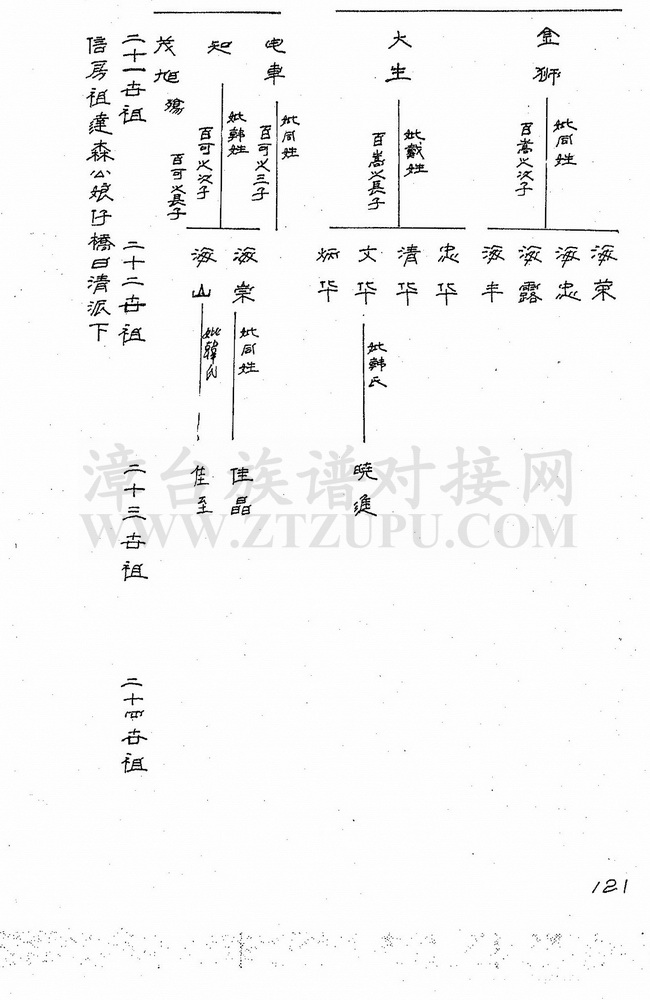 金狮
妣同姓
百嵩之次子
海荣
海忠
海露
海丰
火生
妣戴姓
百嵩之長子
忠华
清华
文华
炳华
妣韩氏
曉進
电車
妣同姓
百可之三子
知
妣韩姓
百可之次子
海棠
海山
妣同姓
妣韓氏
佳晶
佳至
茂旭
殤
百可之長子
二十一世祖
二十二世祖
二十三世祖
二十四世祖
信房祖達森公娘仔橋日清派下
漳台族谱对接网
WWW.ZTZUPU.COM
121